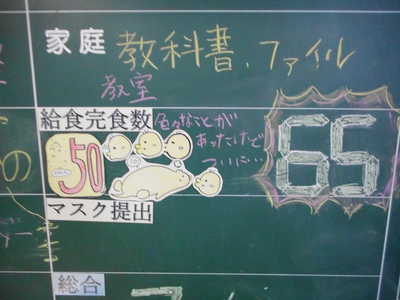 家庭 教科書、ファイル
教室
給食完食数
色々なことが
あったけど
ついに…
50
65
マスク提出
総合
の